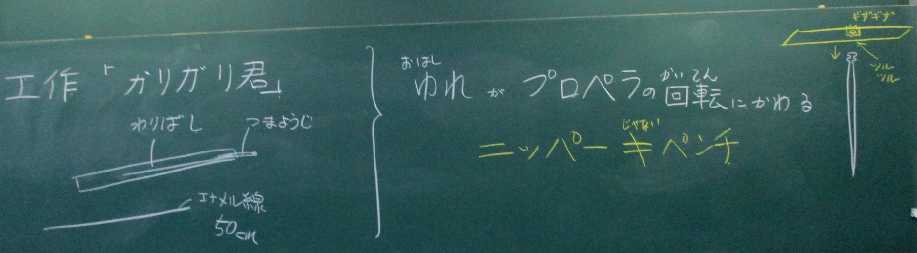 工作「ガリガリ君」
わりばし
つまようじ
エナメル線
50cm
おはし
ゆれ が プロペラの回転にかわる
かいてん
ニッパー≠ペンチ
じゃない
ギザギザ
ツル
ツル